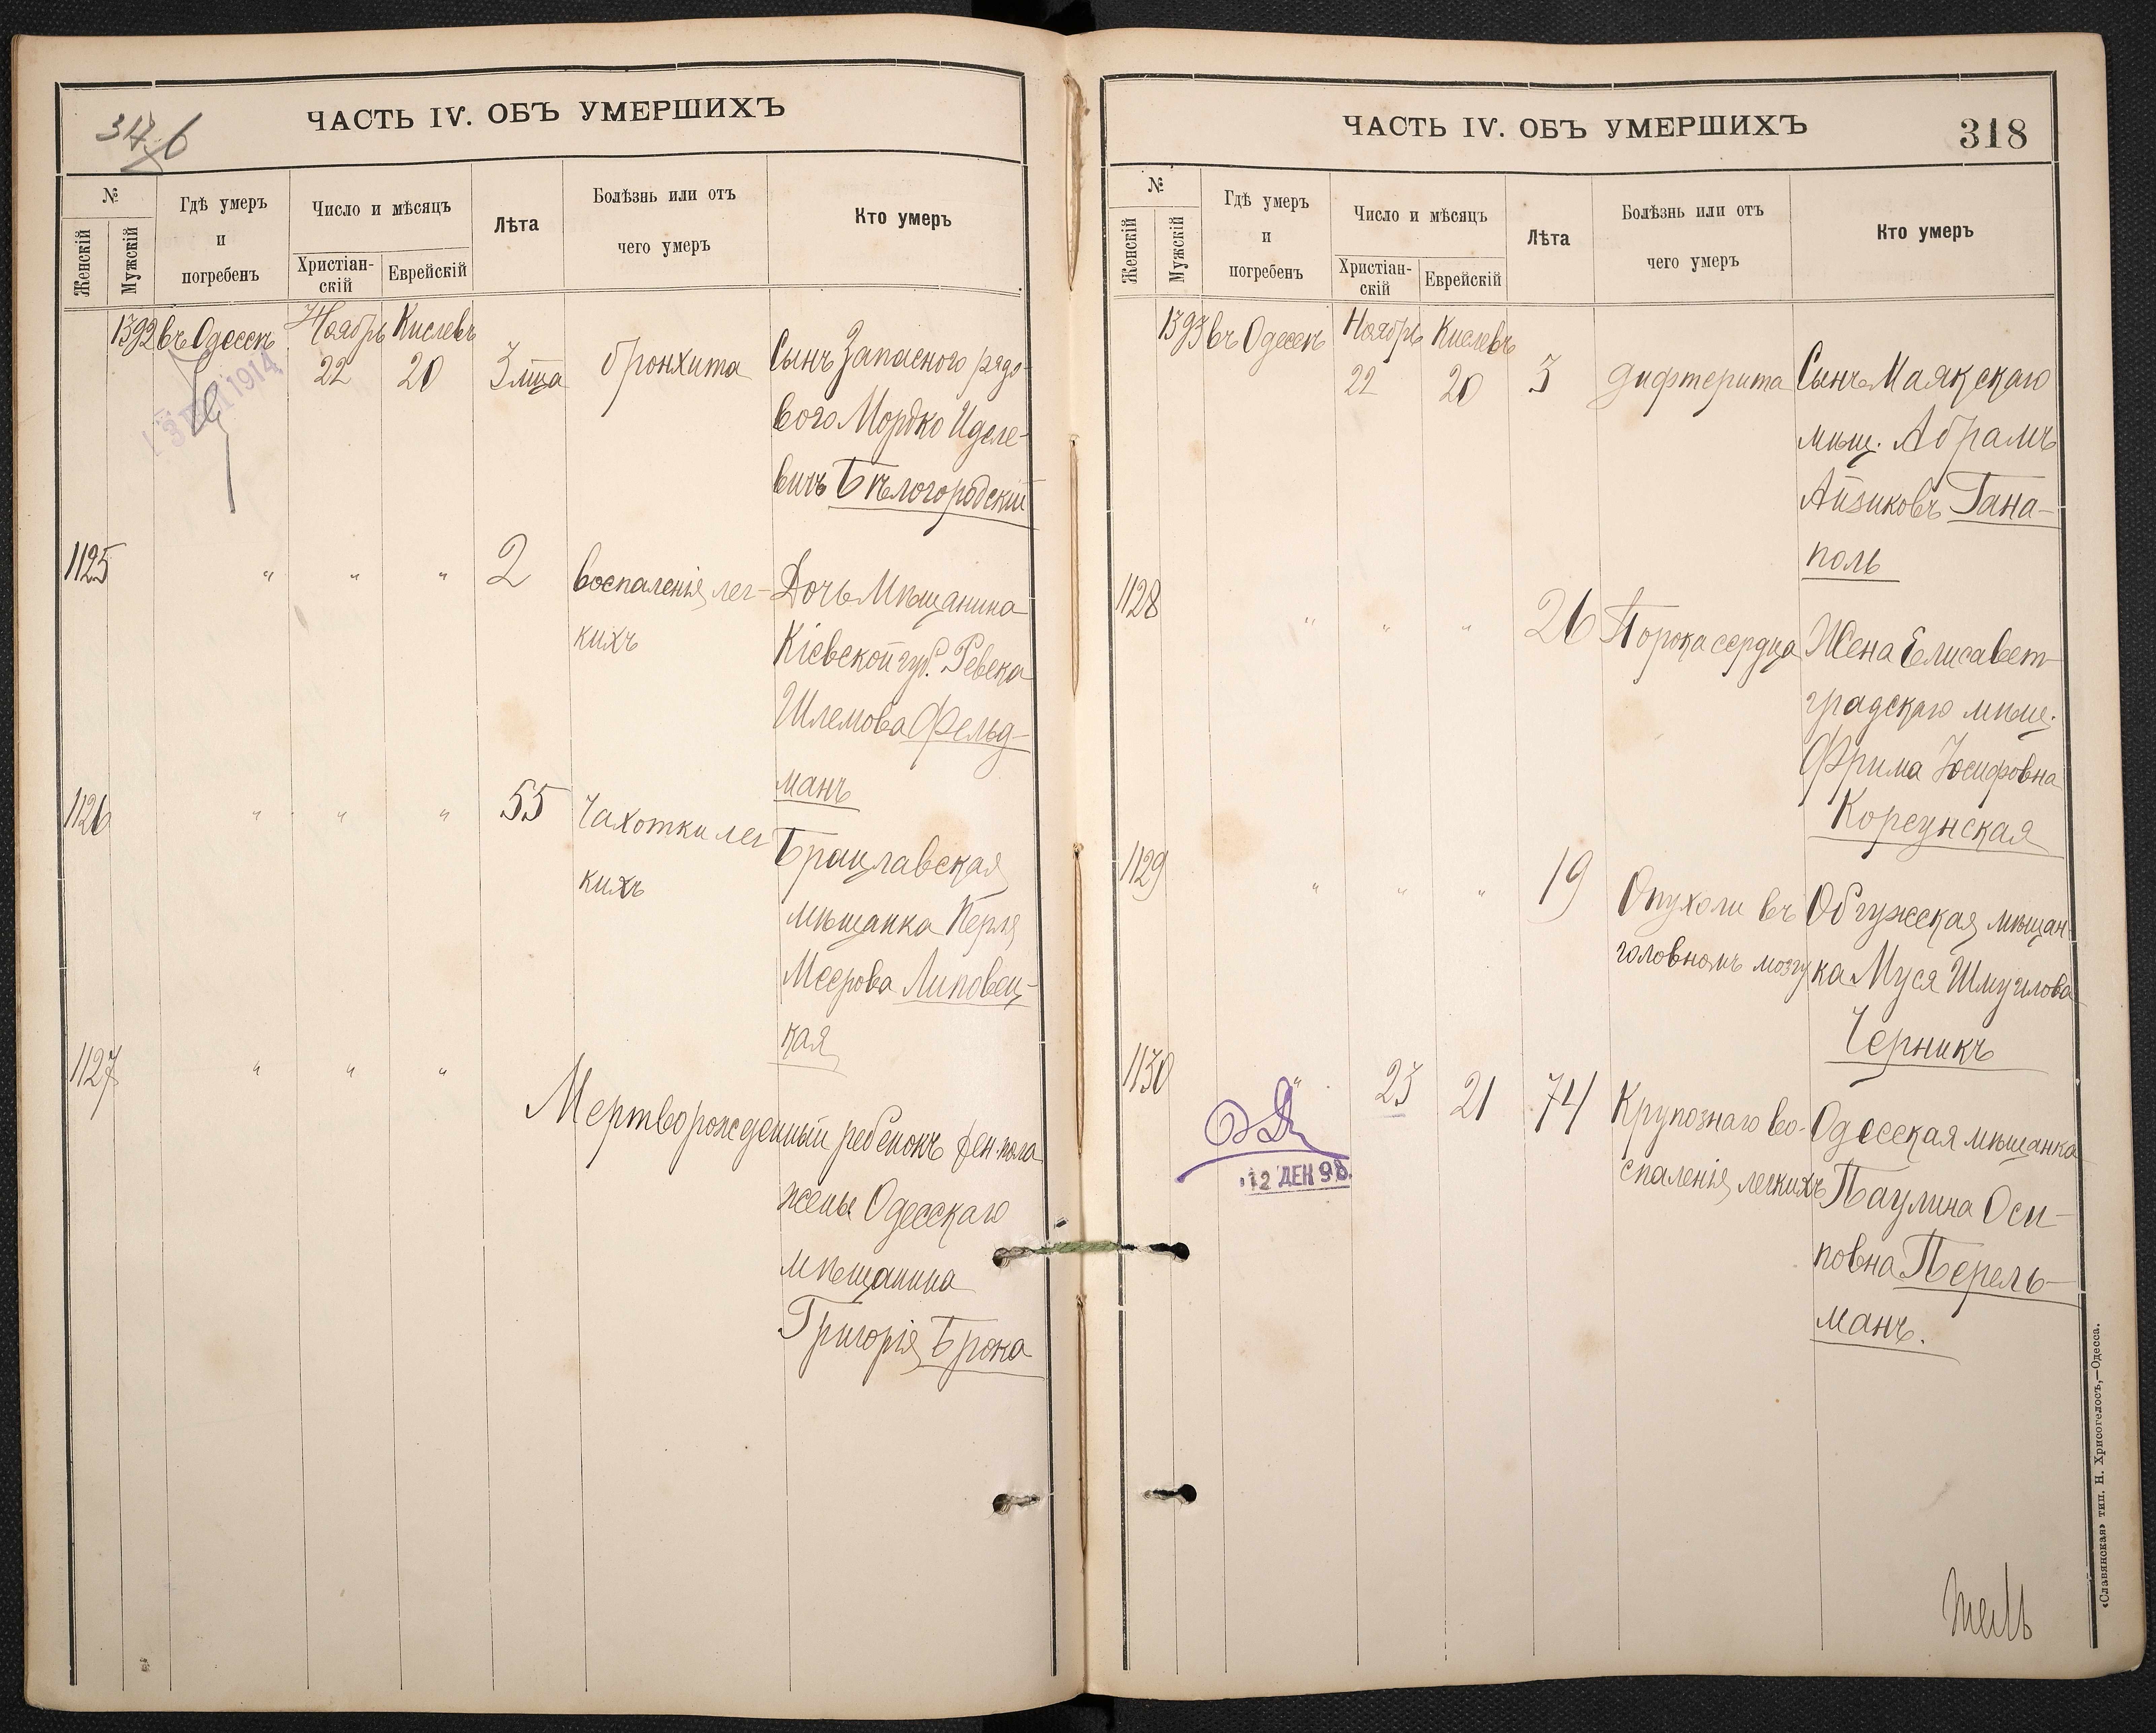 ЧАСТЬ IV. ОБЪ УМЕРШИХЪ
№
Женскій
Мужскій
Гдѣ умеръ
и
погребенъ
Число и мѣсяцъ
Христіан-
скій
Еврейскій
Лѣта
Болѣзнь или отъ
чего умеръ
Кто умеръ
1392 въ Одессѣ Ноябрь Кислевъ
22 20 3 мѣца бронхита Сынъ Запасного рядо-
вого Мордко Иделе-
вичъ Бѣлогородскій
1914
1125 " " " 2 воспаленія лег- Дочь Мѣщанина
кихъ Кіевской губ. Ревека
Шлемова Фельд-
манъ
1126 " " " 55 Чахотки лег Брацлавская
кихъ мѣщанка Перля
Меерова Липовец-
кая
1127 " " "
Мертворожденный ребенокъ жен. пола
жены Одесскаго
мѣщанина
Григорія Брока
ЧАСТЬ IV. ОБЪ УМЕРШИХЪ 318
№
Женскій
Мужскій
Гдѣ умеръ
и
погребенъ
Число и мѣсяцъ
Христіан-
скій
Еврейскій
Лѣта
Болѣзнь или отъ
чего умеръ
Кто умеръ
1393 въ Одессѣ Ноябрь Кислевъ
22 20 3 дифтерита Сынъ Маякскаго
мѣщ. Абрамъ
Айзиковъ Гана-
поль
1128 " " " 26 Порока сердца Жена Елисавет-
градскаго мѣщ.
Фрима Іосифовна
Корсунская
1129 " " " 19 Опухоли въ Ободужская мѣщан-
головномъ мозгу ка Муся Шмуилова
Черникъ
1130 " 23 21 74 Крупознаго во- Одесская мѣщанка
спаленія легкихъ Паулина Оси-
повна Перель-
манъ.
12 ДЕК 98.
«Славянская» тип. Н. Хрисогелосъ,—Одесса.